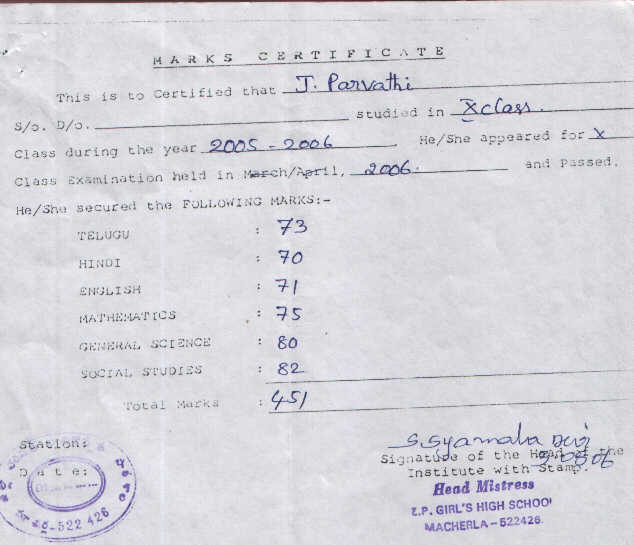 MARKS CERTIFICATE
This is to Certified that J. Parvathi
S/o. D/o. studied in X class.
Class during the year 2005 - 2006 He/She appeared for X
Class Examination held in March/April, 2006. and Passed.
He/She secured the FOLLOWING MARKS:-
TELUGU : 73
HINDI : 70
ENGLISH : 71
MATHEMATICS : 75
GENERAL SCIENCE : 80
SOCIAL STUDIES : 82
Total Marks : 451
Station:
Date:
522 426
S. Syamala Devi
Signature of the Head of the
Institute with Stamp.
Head Mistress
Z.P. GIRL'S HIGH SCHOOL
MACHERLA - 522426.